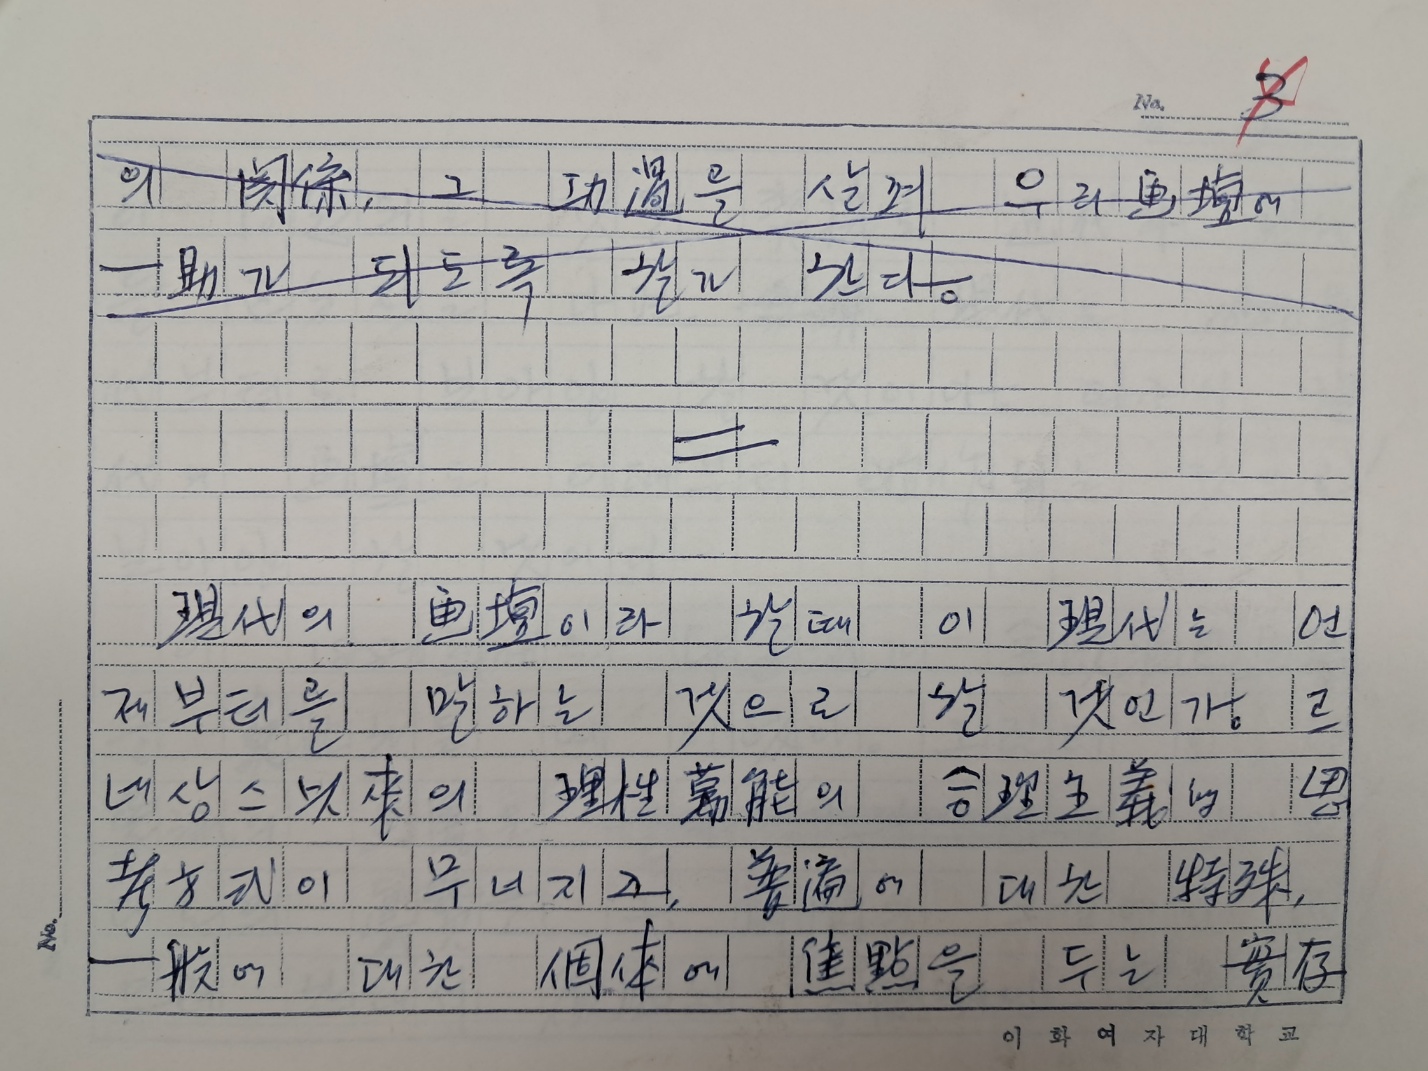 No. 3
의 関係, 그 功過를 살펴 우리 画壇에
一助가 되도록 할가 한다。
二
現代의 画壇이라 할때 이 現代는 언
제부터를 말하는 것으로 할 것인가。 르
네상스 以来의 理性萬能의 合理主義的 思
考方式이 무너지고, 普遍에 대한 特殊,
一般에 대한 個体에 焦點을 두는 實存
No.
이화여자대학교